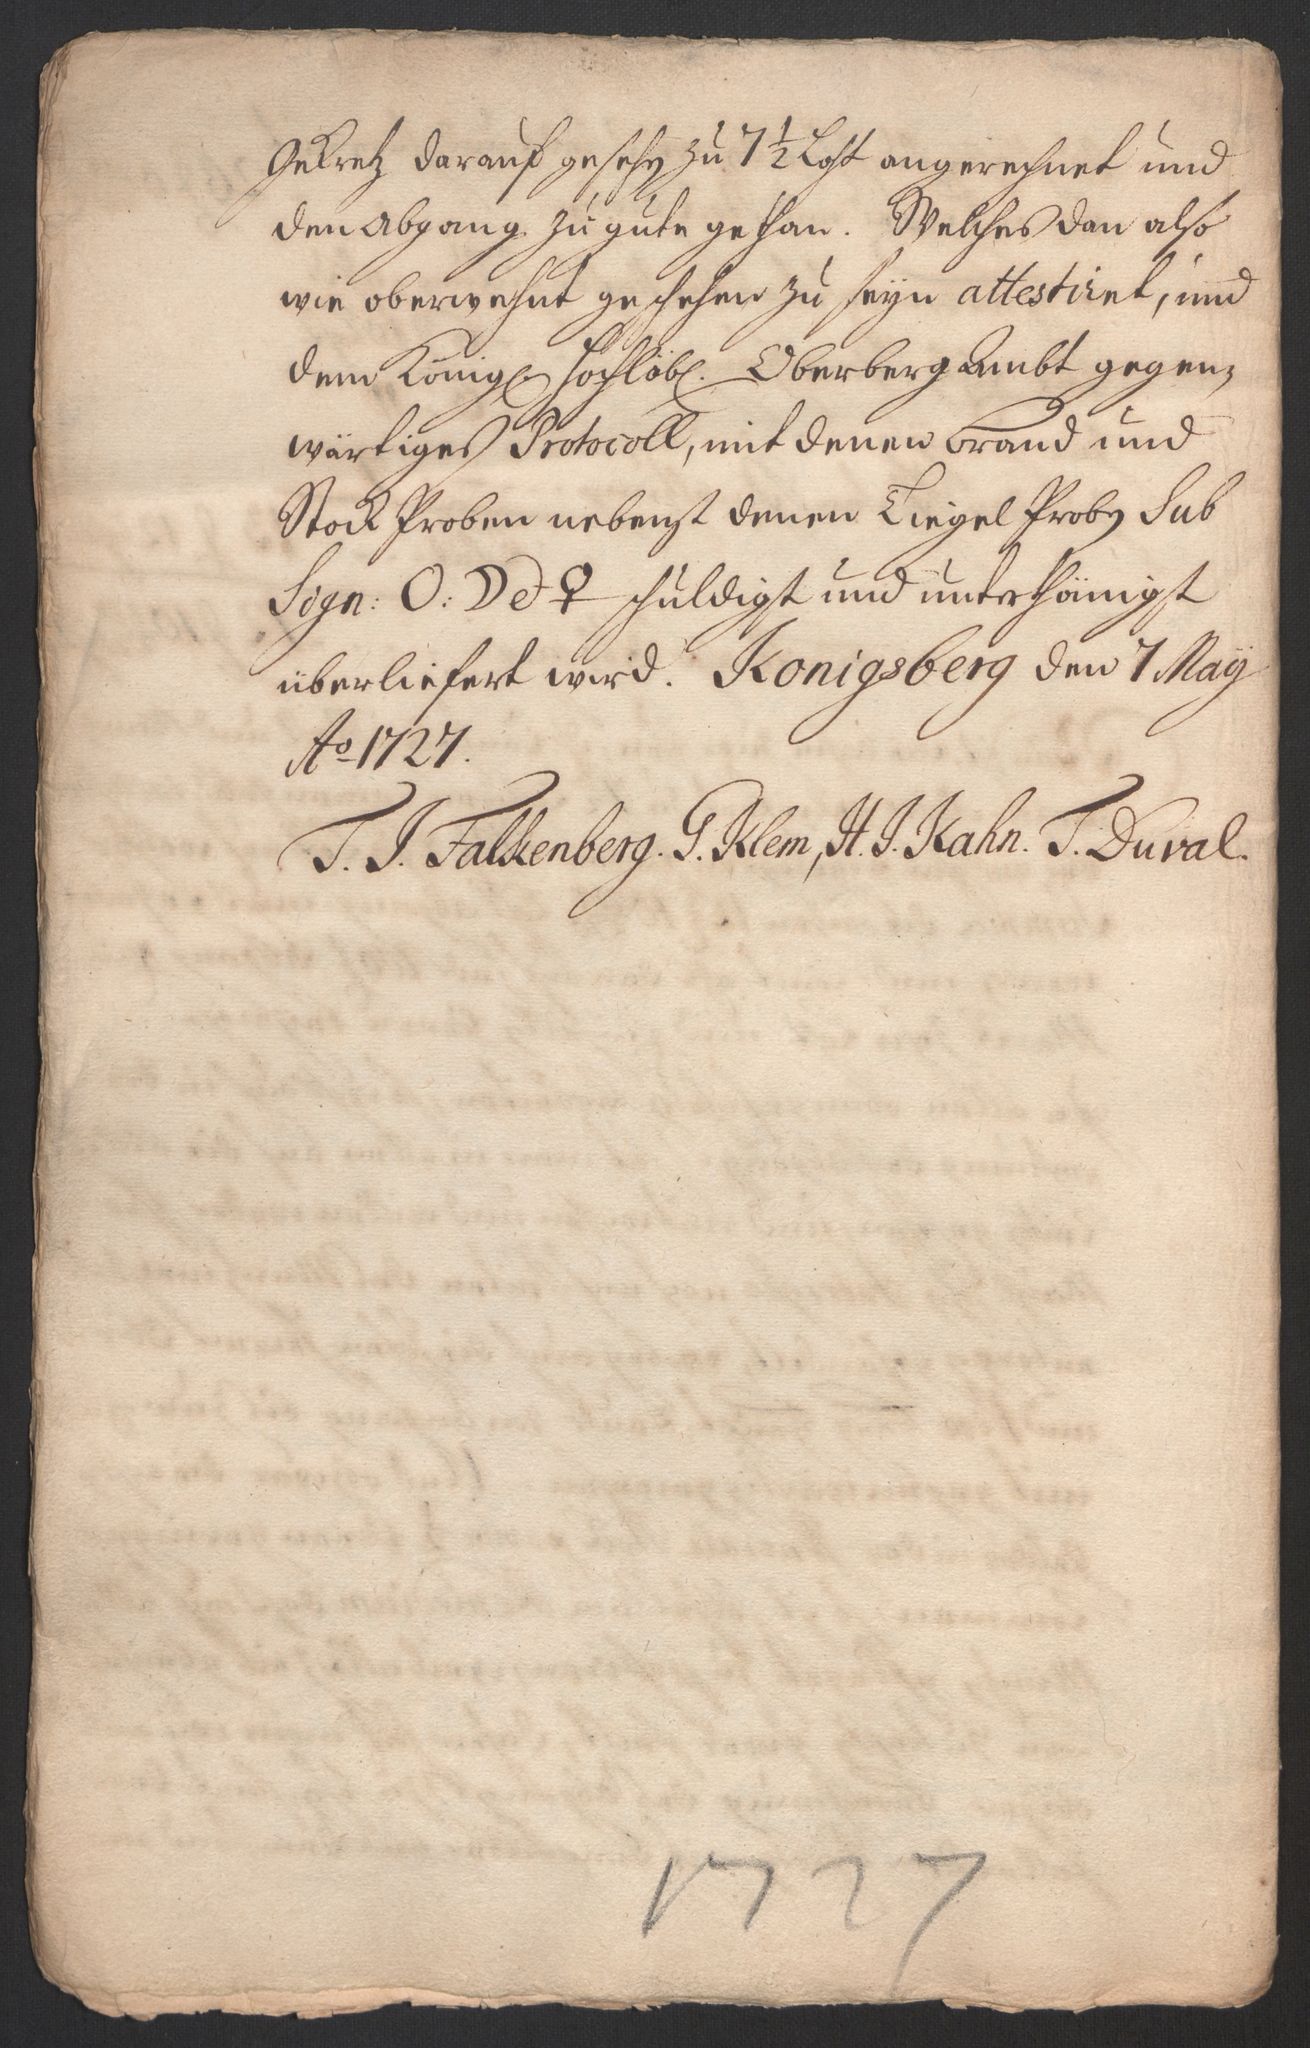 Gekretz darauf gesehen zu 7 1/2 Loht angerechnet und
den Abgang zu gute gethan. Welches dan also
wie oberwehnt geschehen zu seyn attestiret, und
dem Königl. Hochlöbl. Oberbergambt gegen-
wärtiges Protocoll, mit denen Brand und
Stock Proben nebenst denen Tiegel Proben Sub
Sign: O: ☽ et ♀ schuldigst und unterthänigst
überliefert wird. Konigsberg den 7 Maÿ
Ao 1727.
T. J. Falkenberg. G. Klem, H. J. Kahn. T. Duval.
1727